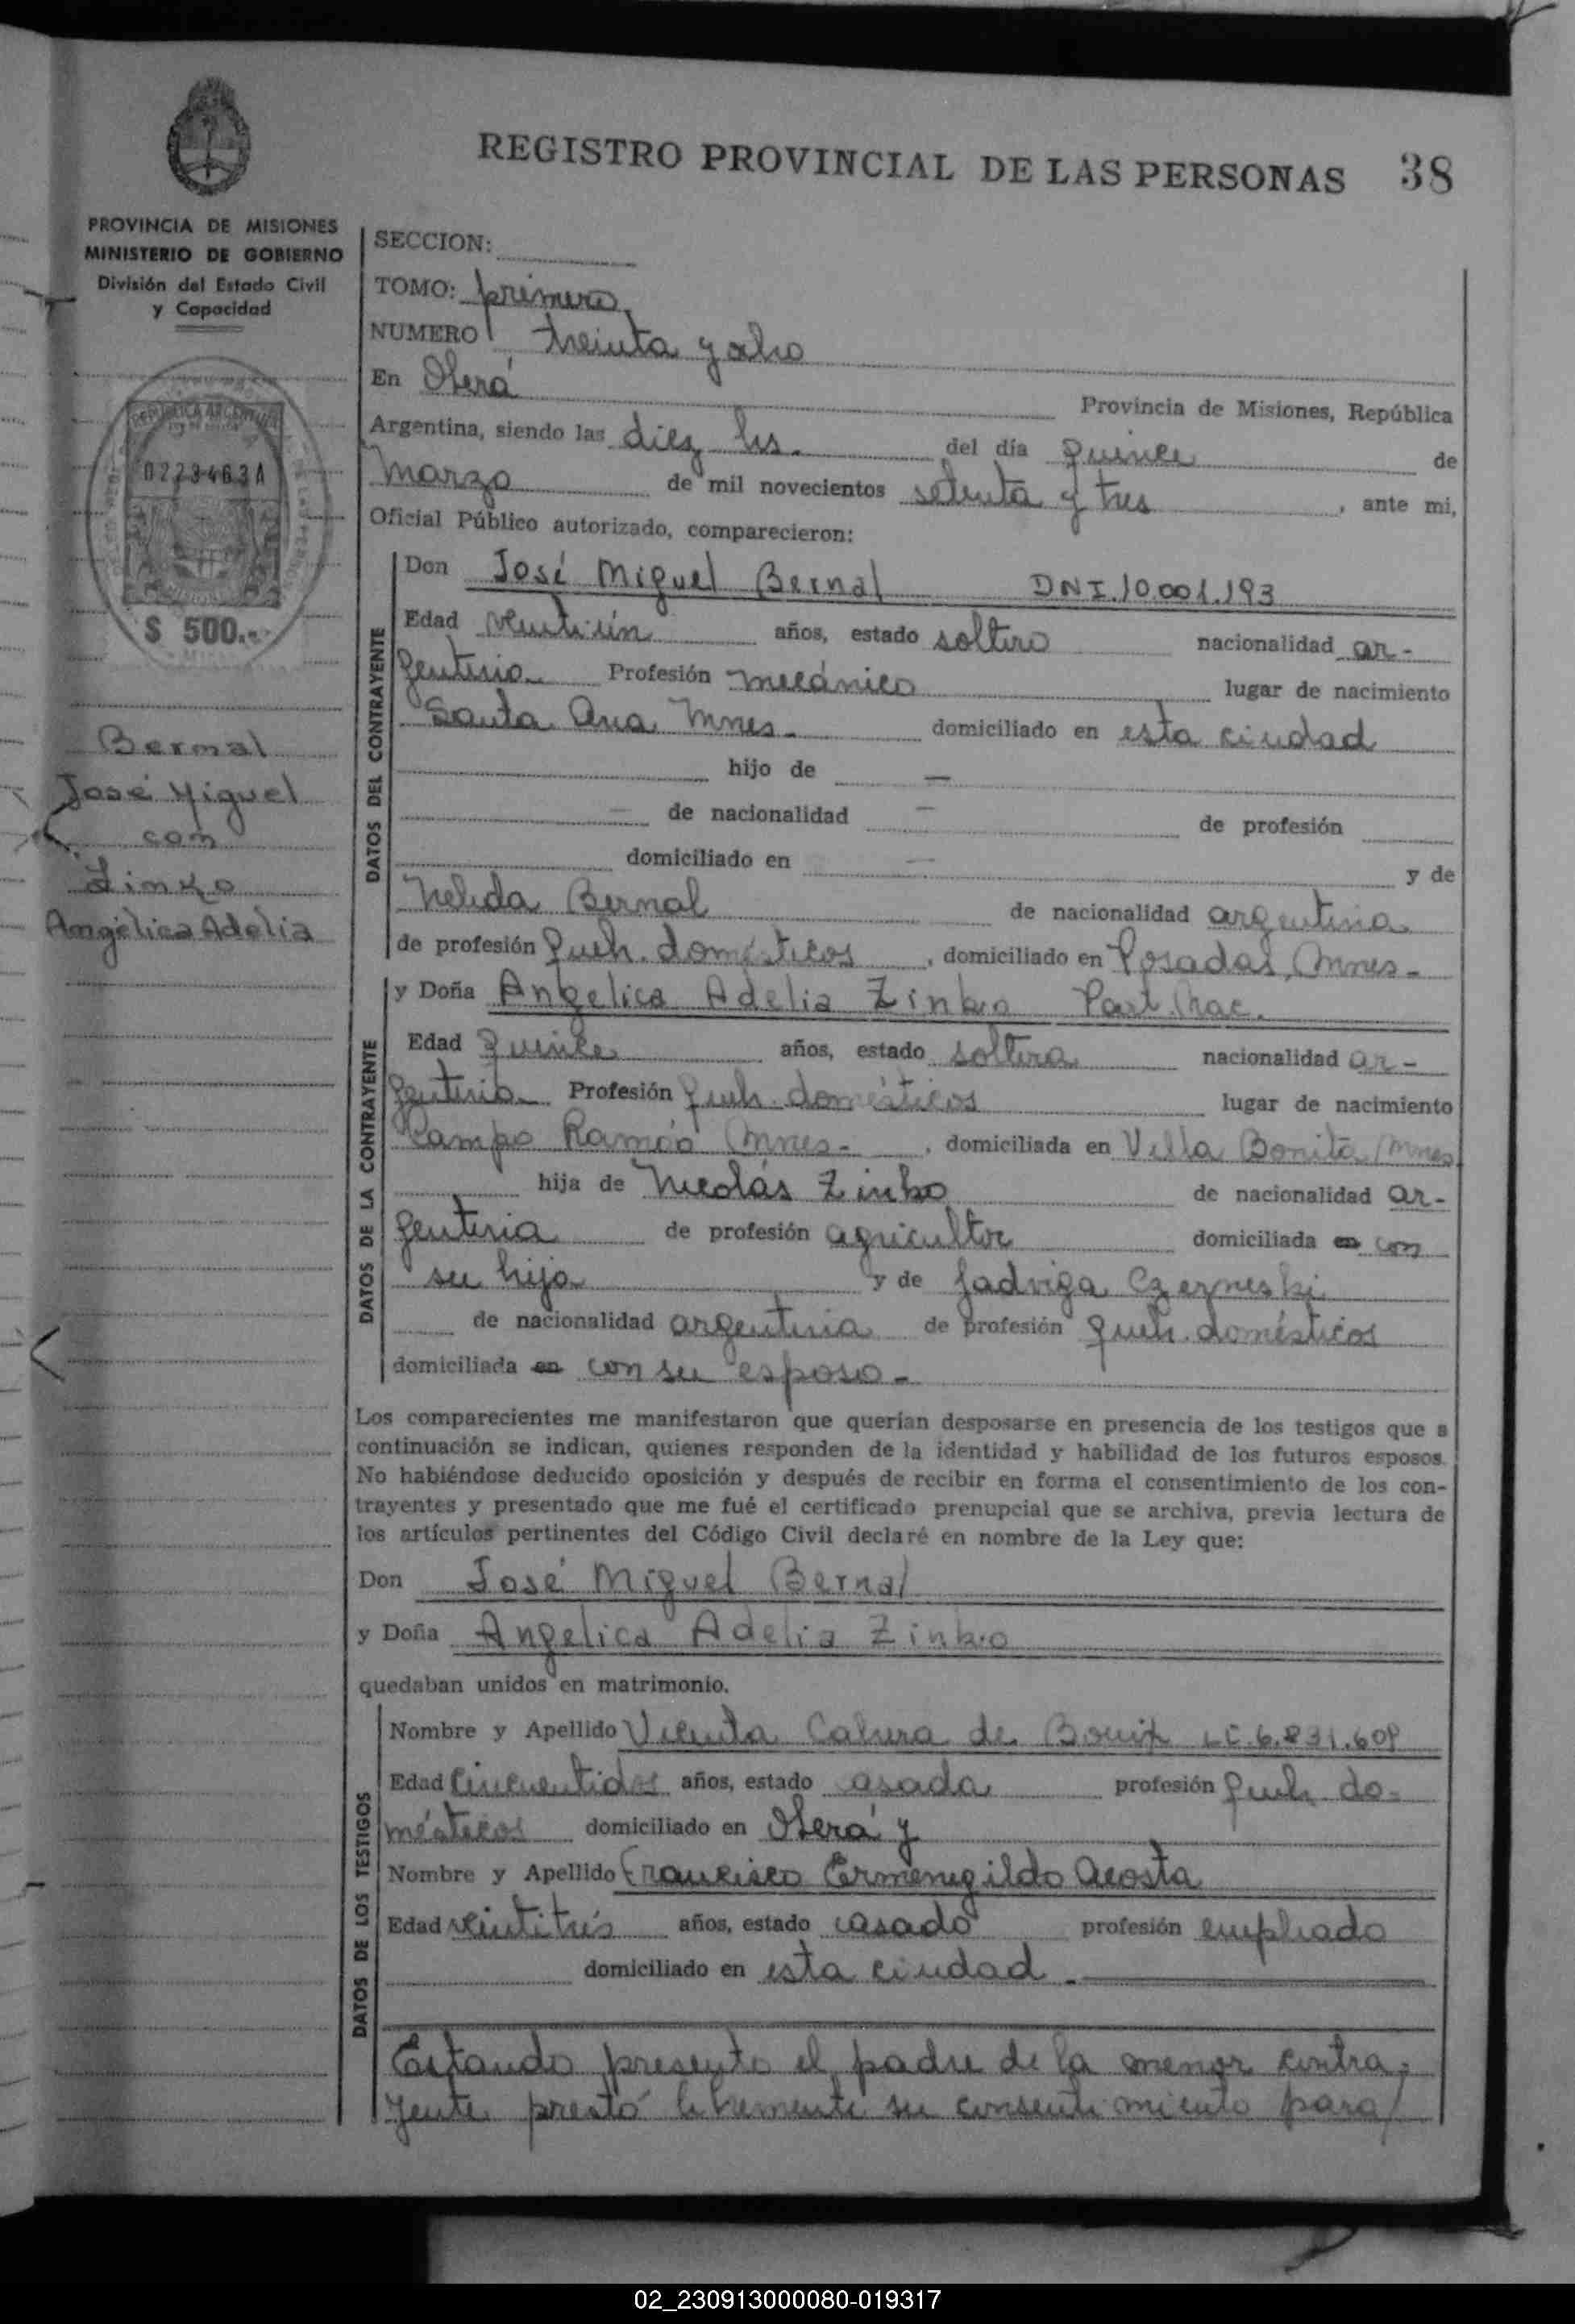 REGISTRO PROVINCIAL DE LAS PERSONAS 38
PROVINCIA DE MISIONES
MINISTERIO DE GOBIERNO
División del Estado Civil
y Capacidad
REPUBLICA ARGENTINA
0223463A
$ 500.-
Bernal
José Miguel
con
Zinko
Angélica Adelia
SECCION:
TOMO: primero
NUMERO treinta y ocho
En Oberá Provincia de Misiones, República
Argentina, siendo las diez hs. del día quince de
marzo de mil novecientos setenta y tres, ante mi,
Oficial Público autorizado, comparecieron:
DATOS DEL CONTRAYENTE
Don José Miguel Bernal DNI.10.001.193
Edad veintiún años, estado soltero nacionalidad ar-
gentina Profesión mecánico lugar de nacimiento
Santa Ana Mnes. domiciliado en esta ciudad
hijo de —
— de nacionalidad — de profesión
domiciliado en — y de
Nelida Bernal de nacionalidad argentina
de profesión queh. domésticos, domiciliado en Posadas, Mnes-
DATOS DE LA CONTRAYENTE
y Doña Angelica Adelia Zinko Part. Nac.
Edad quince años, estado soltera nacionalidad ar-
gentina Profesión queh. domésticos lugar de nacimiento
Campo Ramón Mnes-, domiciliada en Villa Bonita Mnes
hija de Nicolás Zinko de nacionalidad ar-
gentina de profesión agricultor domiciliada en con
su hija y de Jadviga Czerneski
de nacionalidad argentina de profesión queh. domésticos
domiciliada en con su esposo-
Los comparecientes me manifestaron que querían desposarse en presencia de los testigos que a
continuación se indican, quienes responden de la identidad y habilidad de los futuros esposos.
No habiéndose deducido oposición y después de recibir en forma el consentimiento de los con-
trayentes y presentado que me fué el certificado prenupcial que se archiva, previa lectura de
los artículos pertinentes del Código Civil declaré en nombre de la Ley que:
Don José Miguel Bernal
y Doña Angelica Adelia Zinko
quedaban unidos en matrimonio.
DATOS DE LOS TESTIGOS
Nombre y Apellido Vicenta de LC.6.831.609
Edad cincuentidos años, estado casada profesión queh. do-
mésticos domiciliado en Oberá y
Nombre y Apellido Francisco Ermenegildo Acosta
Edad veintitrés años, estado casado profesión empleado
domiciliado en esta ciudad.-
Estando presente el padre de la menor contra-
yente prestó libremente su consentimiento para/
02_230913000080-019317